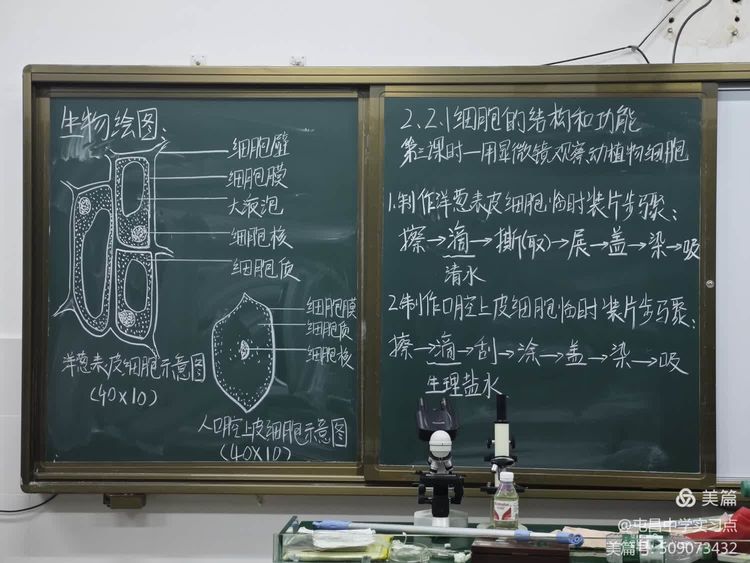 生物绘图:
细胞壁
细胞膜
大液泡
细胞核
细胞质
洋葱表皮细胞示意图
(40×10)
细胞膜
细胞质
细胞核
人口腔上皮细胞示意图
(40×10)
2.2.1细胞的结构和功能
第三课时—用显微镜观察动植物细胞
1.制作洋葱表皮细胞临时装片步骤:
擦→滴→撕(取)→展→盖→染→吸
清水
2.制作口腔上皮细胞临时装片步骤:
擦→滴→刮→涂→盖→染→吸
生理盐水
美篇
@屯昌中学实习点
美篇号: 509073432